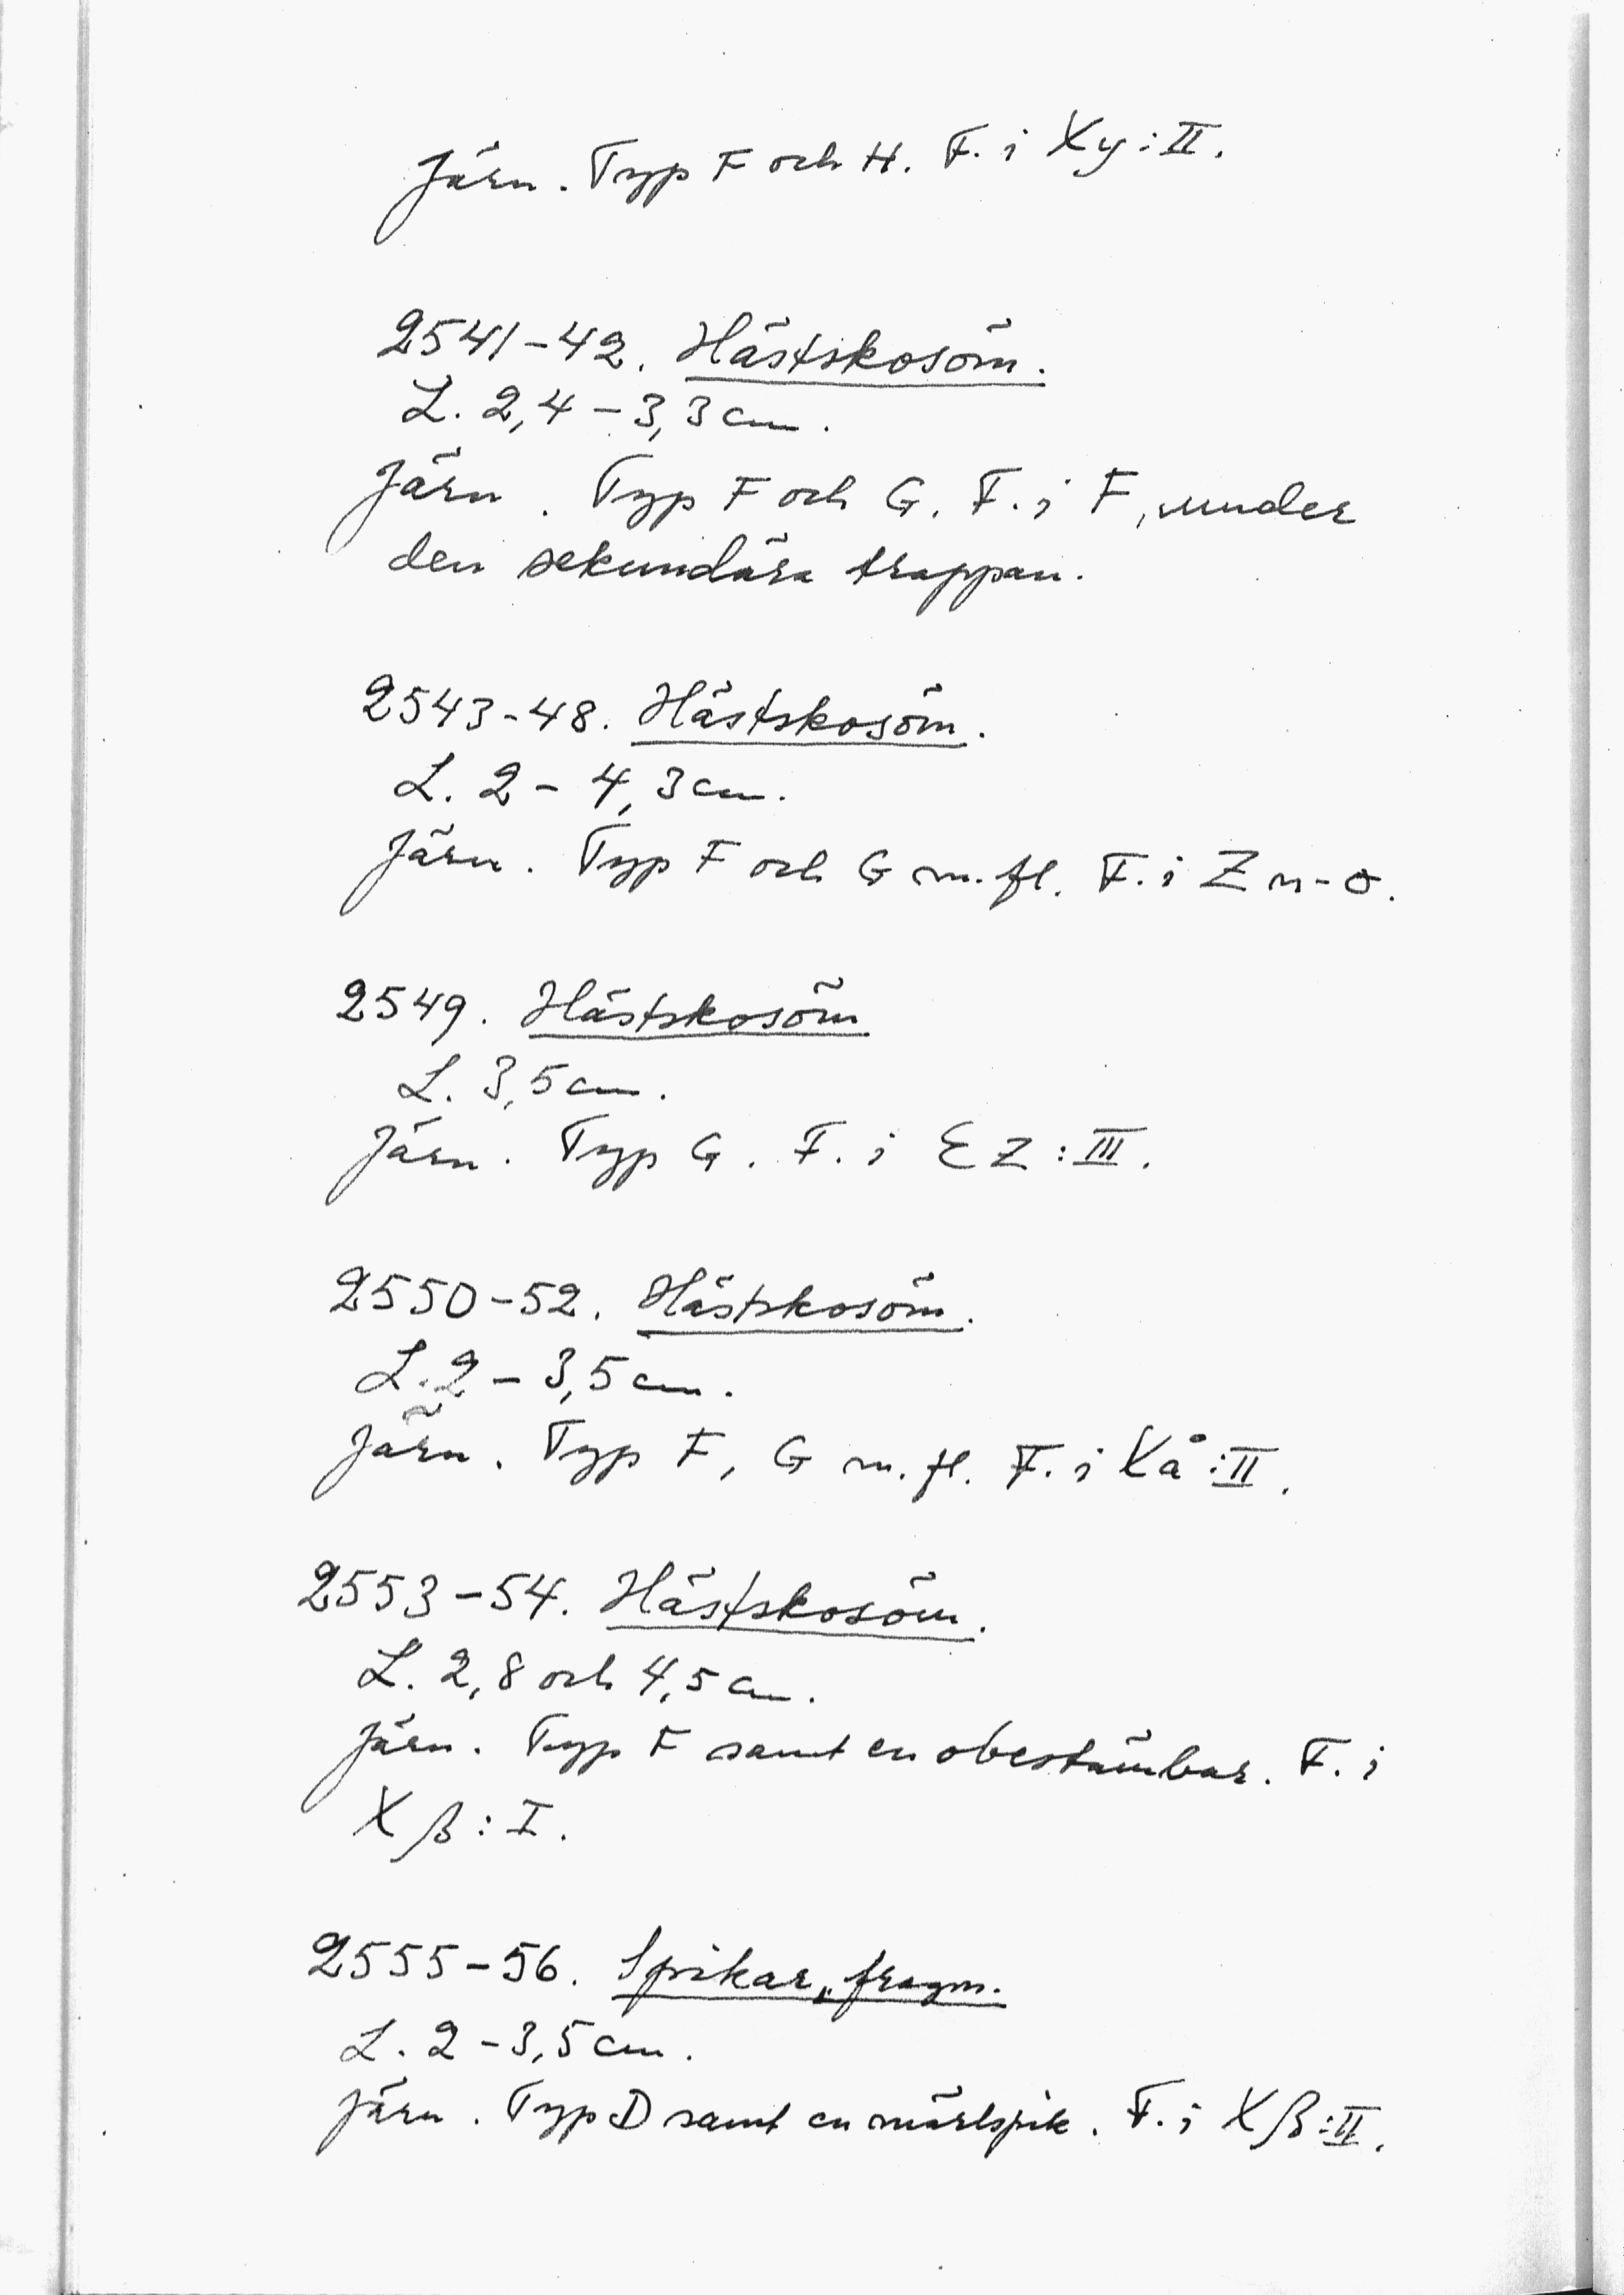 Järn. Typ F och H. F. i Xy:II.
2541-42. Hästskosöm.
L. 2,4-3,3cm.
Järn. Typ F och G. F. i F, under
den sekundära trappan.
2543-48. Hästskosöm.
L. 2-4,3cm.
Järn. Typ F och G m.fl. F. i Z n-o.
2549. Hästskosöm
L. 3,5cm.
Järn. Typ G. F. i EZ:III.
2550-52. Hästskosöm.
L. 2-3,5cm.
Järn. Typ F, G m.fl. F. i Xå:II.
2553-54. Hästskosöm.
L. 2,8 och 4,5cm.
Järn. Typ F samt en obestämbar. F. i
Xβ:I.
2555-56. Spikar, fragm.
L. 2-3,5cm.
Järn. Typ D samt en märlspik. F. i Xβ:II.